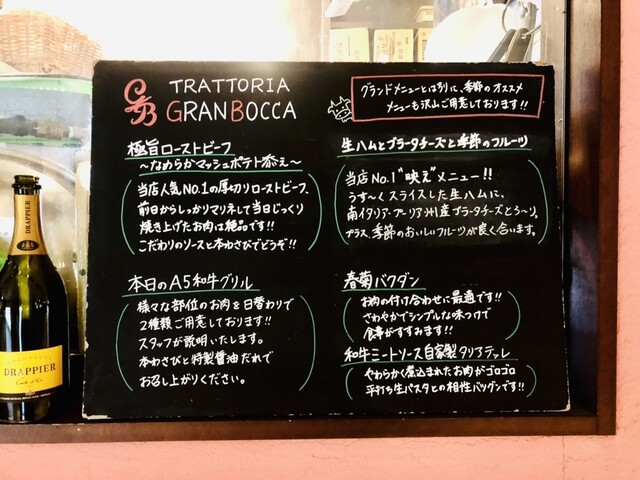 GB
TRATTORIA
GRANBOCCA
グランドメニューとは別に、季節のオススメ
メニューも沢山ご用意しております!!
極旨ローストビーフ
〜なめらかマッシュポテト添え〜
当店人気No.1の厚切りローストビーフ。
前日からしっかりマリネして当日じっくり
焼き上げたお肉は絶品です!!
こだわりのソースと本わさびでどうぞ!!
本日のA5和牛グリル
様々な部位のお肉を日替わりで
2種類ご用意しております!!
スタッフが説明いたします。
本わさびと特製醤油だれで
お召し上がりください。
生ハムとブラータチーズと季節のフルーツ
当店No.1"映え"メニュー!!
うす〜くスライスした生ハムに、
南イタリア・プーリア州産ブラータチーズとろ〜り。
プラス、季節のおいしいフルーツが良く合います。
春菊バクダン
お肉の付け合わせに最適です!!
さわやかでシンプルな味つけで
食事がすすみます!!
和牛ミートソース自家製タリアテッレ
やわらかく煮込まれたお肉がゴロゴロ
平打ち生パスタとの相性バツグンです!!
DRAPPIER
DRAPPIER
Carte d'Or